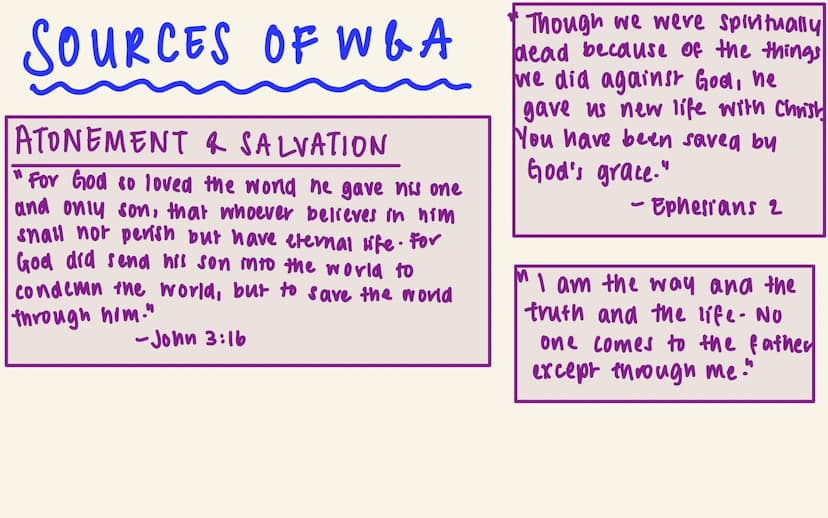 SOURCES OF W&A
ATONEMENT & SALVATION
"For God so loved the world he gave his one
and only son, that whoever believes in him
shall not perish but have eternal life. For
God did send his son into the world to
condemn the world, but to save the world
through him."
- John 3:16
"Though we were spiritually
dead because of the things
we did against God, he
gave us new life with Christ.
You have been saved by
God's grace."
- Ephesians 2
"I am the way and the
truth and the life. No
one comes to the father
except through me."